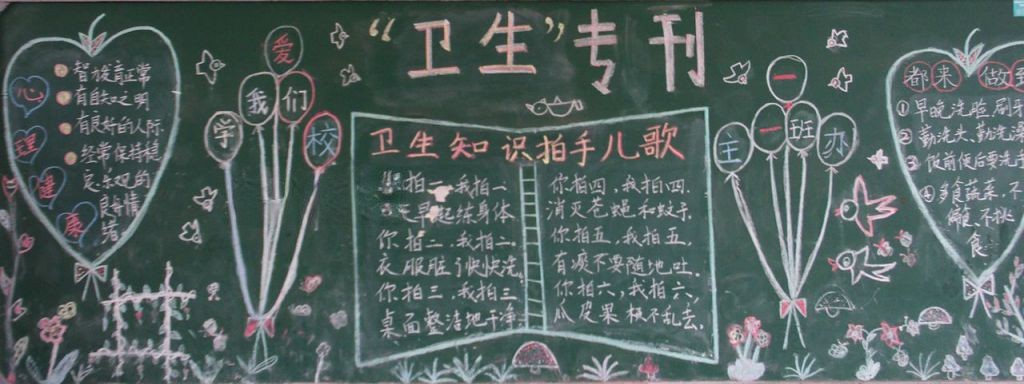 “卫生”专刊
心理健康
智力发育正常
有自知之明
有良好的人际
经常保持稳
定、乐观的
良好情
绪
我爱们
学校
卫生知识拍手儿歌
你拍一,我拍一
早起练身体.
你拍二,我拍二.
衣服脏了快快洗.
你拍三,我拍三
桌面整洁地干净
你拍四,我拍四.
消灭苍蝇和蚊子.
你拍五,我拍五.
有痰不要随地吐.
你拍六,我拍六,
瓜皮果核不乱丢.
一
主一班办
都来做到
①早晚洗脸、刷牙
②勤洗头、勤洗澡
③饭前便后要洗手
④多食蔬菜、不
偏、不挑
食